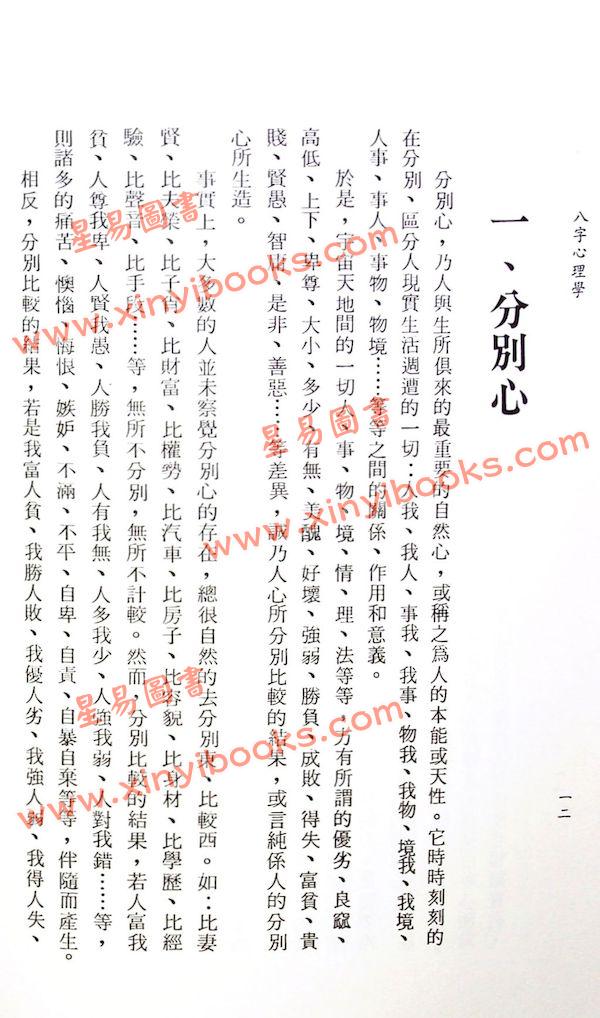 八字心理學
一二
一、分別心
分別心，乃人與生所俱來的最重要的自然心，或稱之爲人的本能或天性。它時時刻刻的
在分別、區分人現實生活週遭的一切：人我、我人、事我、我事、物我、我物、境我、我境、
人事、事人、事物、物境……等等之間的關係、作用和意義。
於是，宇宙天地間的一切人、事、物、境、情、理、法等等，方有所謂的優劣、良窳、
高低、上下、卑尊、大小、多少、有無、美醜、好壞、強弱、勝負、成敗、得失、富貧、貴
賤、賢愚、智庸、是非、善惡……等差異，誠乃人心所分別比較的結果，或言純係人的分別
心所生造。
事實上，大多數的人並未察覺分別心的存在，總很自然的去分別東、比較西。如：比妻
賢、比夫榮、比子肖、比財富、比權勢、比汽車、比房子、比容貌、比身材、比學歷、比經
驗、比聲音、比手段……等，無所不分別，無所不計較。然而，分別比較的結果，若人富我
貧、人尊我卑、人賢我愚、人勝我負、人有我無、人多我少、人強我弱、人對我錯……等，
則諸多的痛苦、懊惱、悔恨、嫉妒、不滿、不平、自卑、自責、自暴自棄等等，伴隨而產生。
相反，分別比較的結果，若是我富人貧、我勝人敗、我優人劣、我強人弱、我得人失、
星易圖書
www.xinyibooks.com
星易圖書
www.xinyibooks.com
星易圖書
www.xinyibooks.com